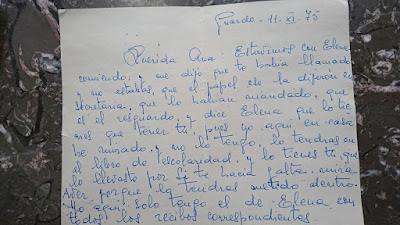 Guardo - 11 - XI - 75
Querida Ana: Estuvimos con Elena
comiendo, y me dijo que te había llamado
y no estabas, que el papel de la dijeron en
secretaria que lo habían mandado, que
es el resguardo, y dice Elena que lo tie
nes que tener tú, pues yo aquí en casa
he mirado y no lo tengo, lo tendras en
el libro de escolaridad, y lo tienes tú, que
lo llevaste por si te hacía falta, mira a
ver, porque la tendras metido dentro.
Yo aquí solo tengo el de Elena con
todos los recibos correspondientes.